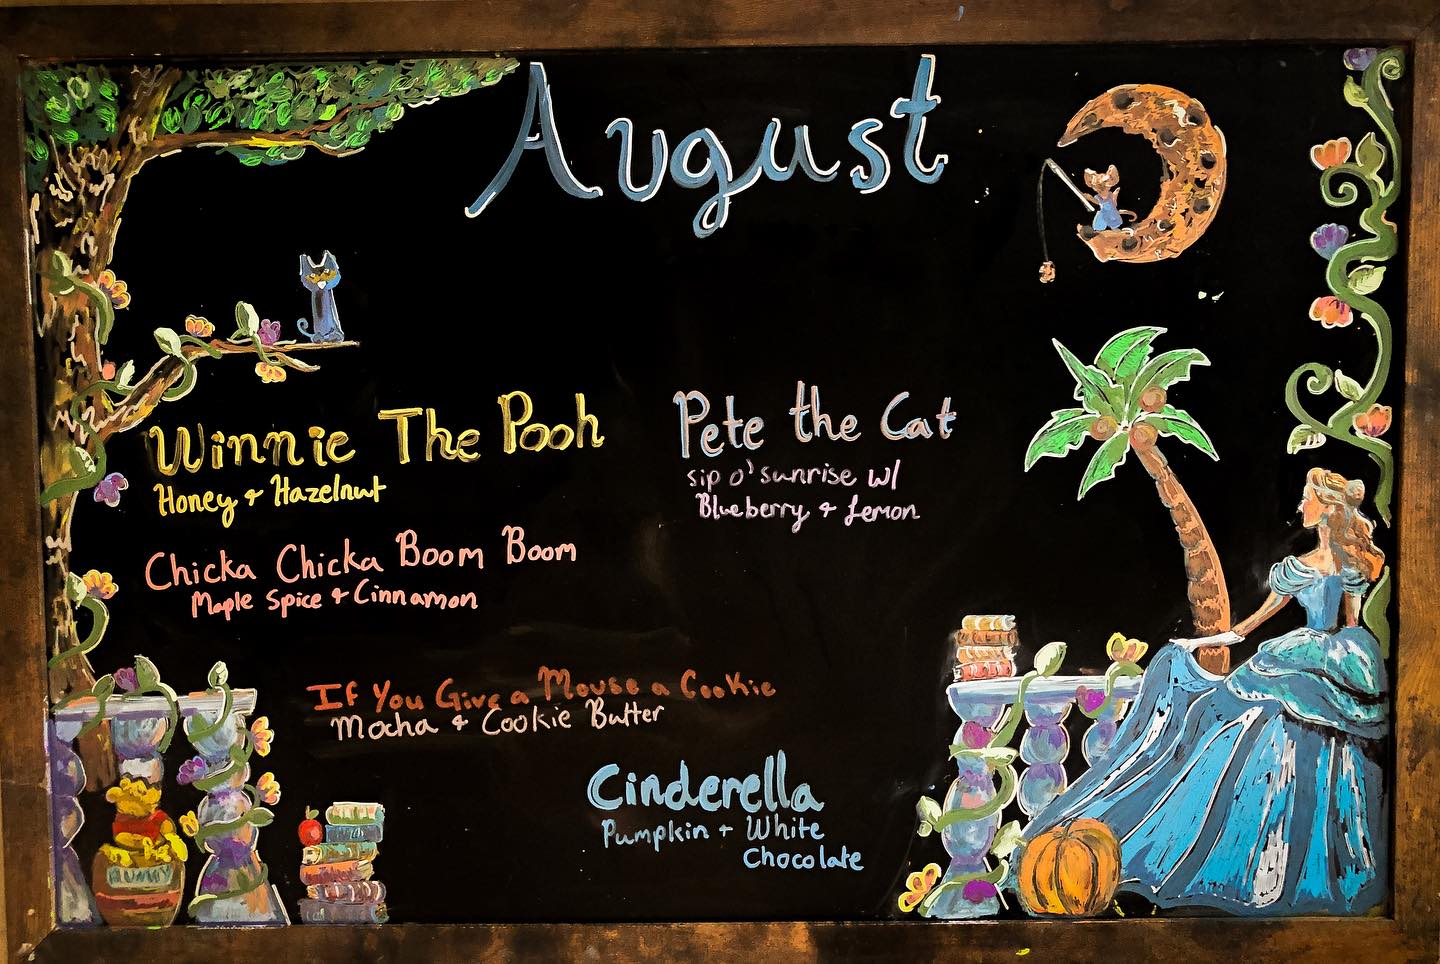 August
Winnie The Pooh
Honey & Hazelnut
Pete the Cat
sip o' sunrise w/
Blueberry & Lemon
Chicka Chicka Boom Boom
Maple Spice & Cinnamon
If You Give a Mouse a Cookie
Mocha & Cookie Butter
Cinderella
Pumpkin + White
Chocolate
HUNNY